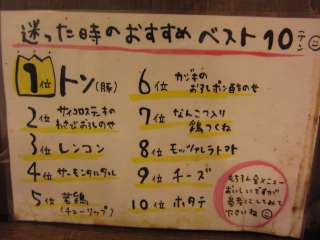 迷った時のおすすめ ベスト10
1位 トン(豚)
2位 サイコロステーキの
わさびおろしのせ
3位 レンコン
4位 サーモンタルタル
5位 若鶏
(チューリップ)
6位 カジキの
おろしポン酢のせ
7位 なんこつ入り
鶏つくね
8位 モッツァレラトマト
9位 チーズ
10位 ホタテ
もちろん全メニュー
おいしいですが
参考にしてみて
下さいね